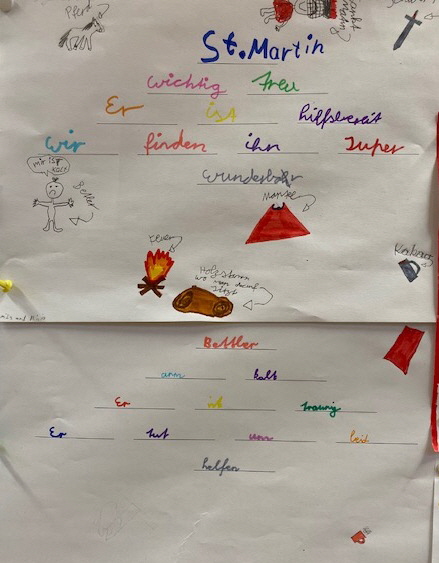 Pferd
St. Martin
wichtig treu
Er ist hilfsbereit
Wir finden ihn super
wunderbar
mir ist kalt
Bettler
Mantel
Feuer
Holzstamm wo man drauf sitzt
Bettler
arm kalt
Er ist traurig
Er tut uns leid
helfen